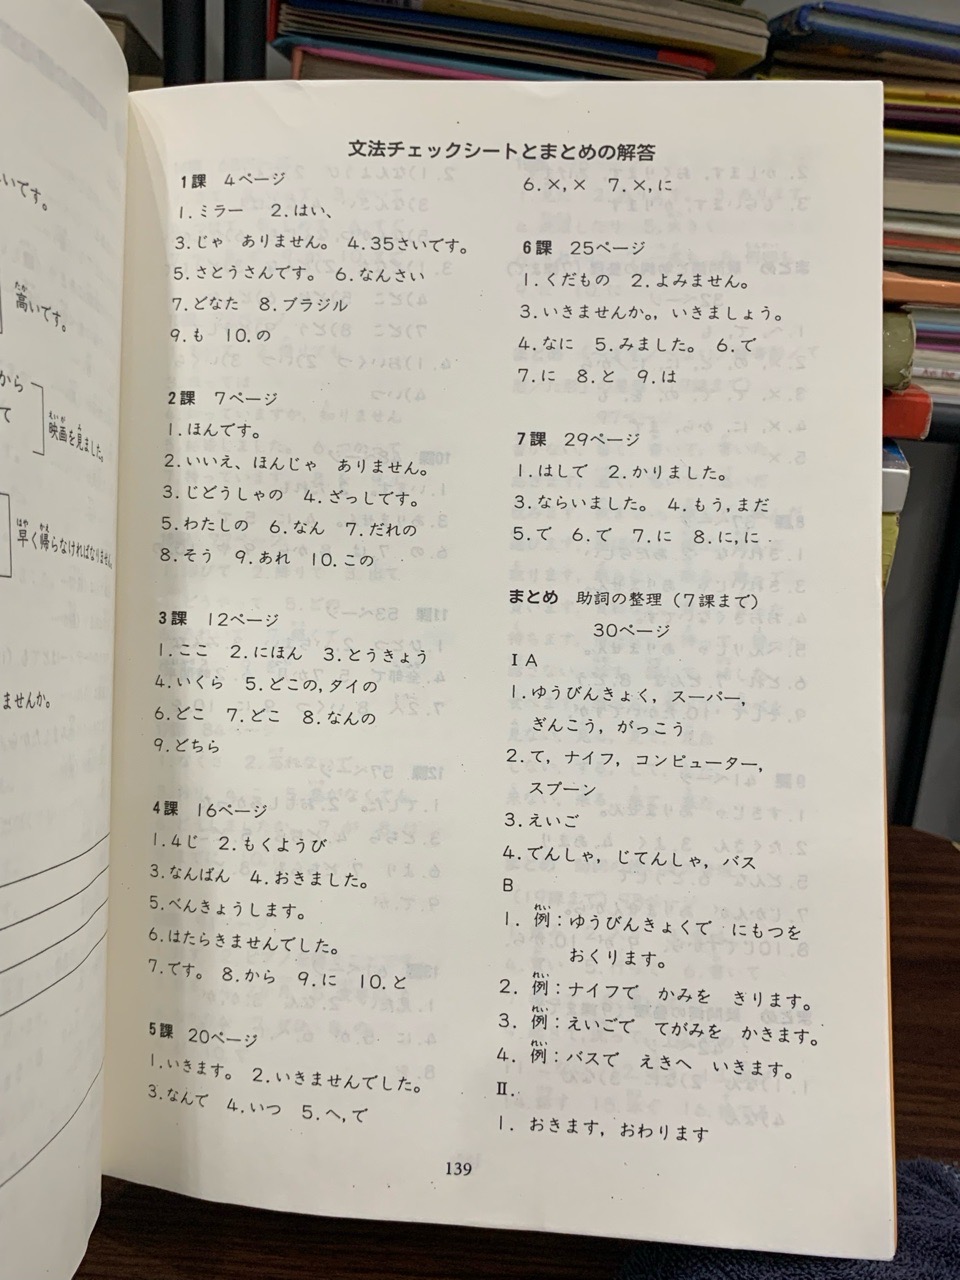 いです。
高いです。
たか
から
て
映画を見ました。
えいが
み
早く帰らなければなりません。
はや
かえ
ませんか。
文法チェックシートとまとめの解答
1課 4ページ
1.ミラー 2.はい、
3.じゃ ありません。 4.35さいです。
5.さとうさんです。 6.なんさい
7.どなた 8.ブラジル
9.も 10.の
2課 7ページ
1.ほんです。
2.いいえ、ほんじゃ ありません。
3.じどうしゃの 4.ざっしです。
5.わたしの 6.なん 7.だれの
8.そう 9.あれ 10.この
3課 12ページ
1.ここ 2.にほん 3.とうきょう
4.いくら 5.どこの,タイの
6.どこ 7.どこ 8.なんの
9.どちら
4課 16ページ
1.4じ 2.もくようび
3.なんばん 4.おきました。
5.べんきょうします。
6.はたらきませんでした。
7.です。 8.から 9.に 10.と
5課 20ページ
1.いきます。 2.いきませんでした。
3.なんで 4.いつ 5.へ,で
6.×,× 7.×,に
6課 25ページ
1.くだもの 2.よみません。
3.いきませんか。,いきましょう。
4.なに 5.みました。 6.で
7.に 8.と 9.は
7課 29ページ
1.はしで 2.かりました。
3.ならいました。 4.もう,まだ
5.で 6.で 7.に 8.に,に
まとめ 助詞の整理(7課まで)
30ページ
I A
1.ゆうびんきょく,スーパー,
ぎんこう,がっこう
2.て,ナイフ,コンピューター,
スプーン
3.えいご
4.でんしゃ,じてんしゃ,バス
B
れい
1.例:ゆうびんきょくで にもつを
おくります。
れい
2.例:ナイフで かみを きります。
れい
3.例:えいごで てがみを かきます。
れい
4.例:バスで えきへ いきます。
II.
1.おきます,おわります
139